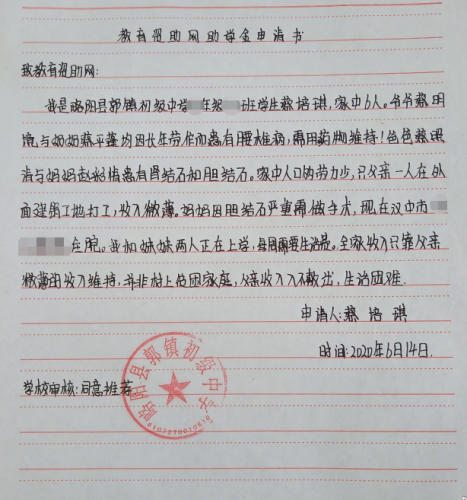 教育帮助网助学金申请书
致教育帮助网:
我是略阳县郭镇初级中学 年级 班学生蔡培琪,家中6人。爷爷蔡明
与奶奶蔡平莲均因长年劳作而患有腰椎病,需用药物维持!爸爸蔡
清与妈妈赵 患有肾结石和胆结石。家中人口多劳力少,只父亲一人在外
面建筑工地打工,收入微薄。妈妈因胆结石严重需做手术,现在汉中市
住院。我和妹妹两人正在上学,每周需要生活费。全家收入只靠父亲
微薄的收入维持,并非村上贫困家庭,父亲收入入不敷出,生活困难.
申请人:蔡培琪
时间:2020年6月14日.
学校审核:同意推荐
略阳县郭镇初级中学